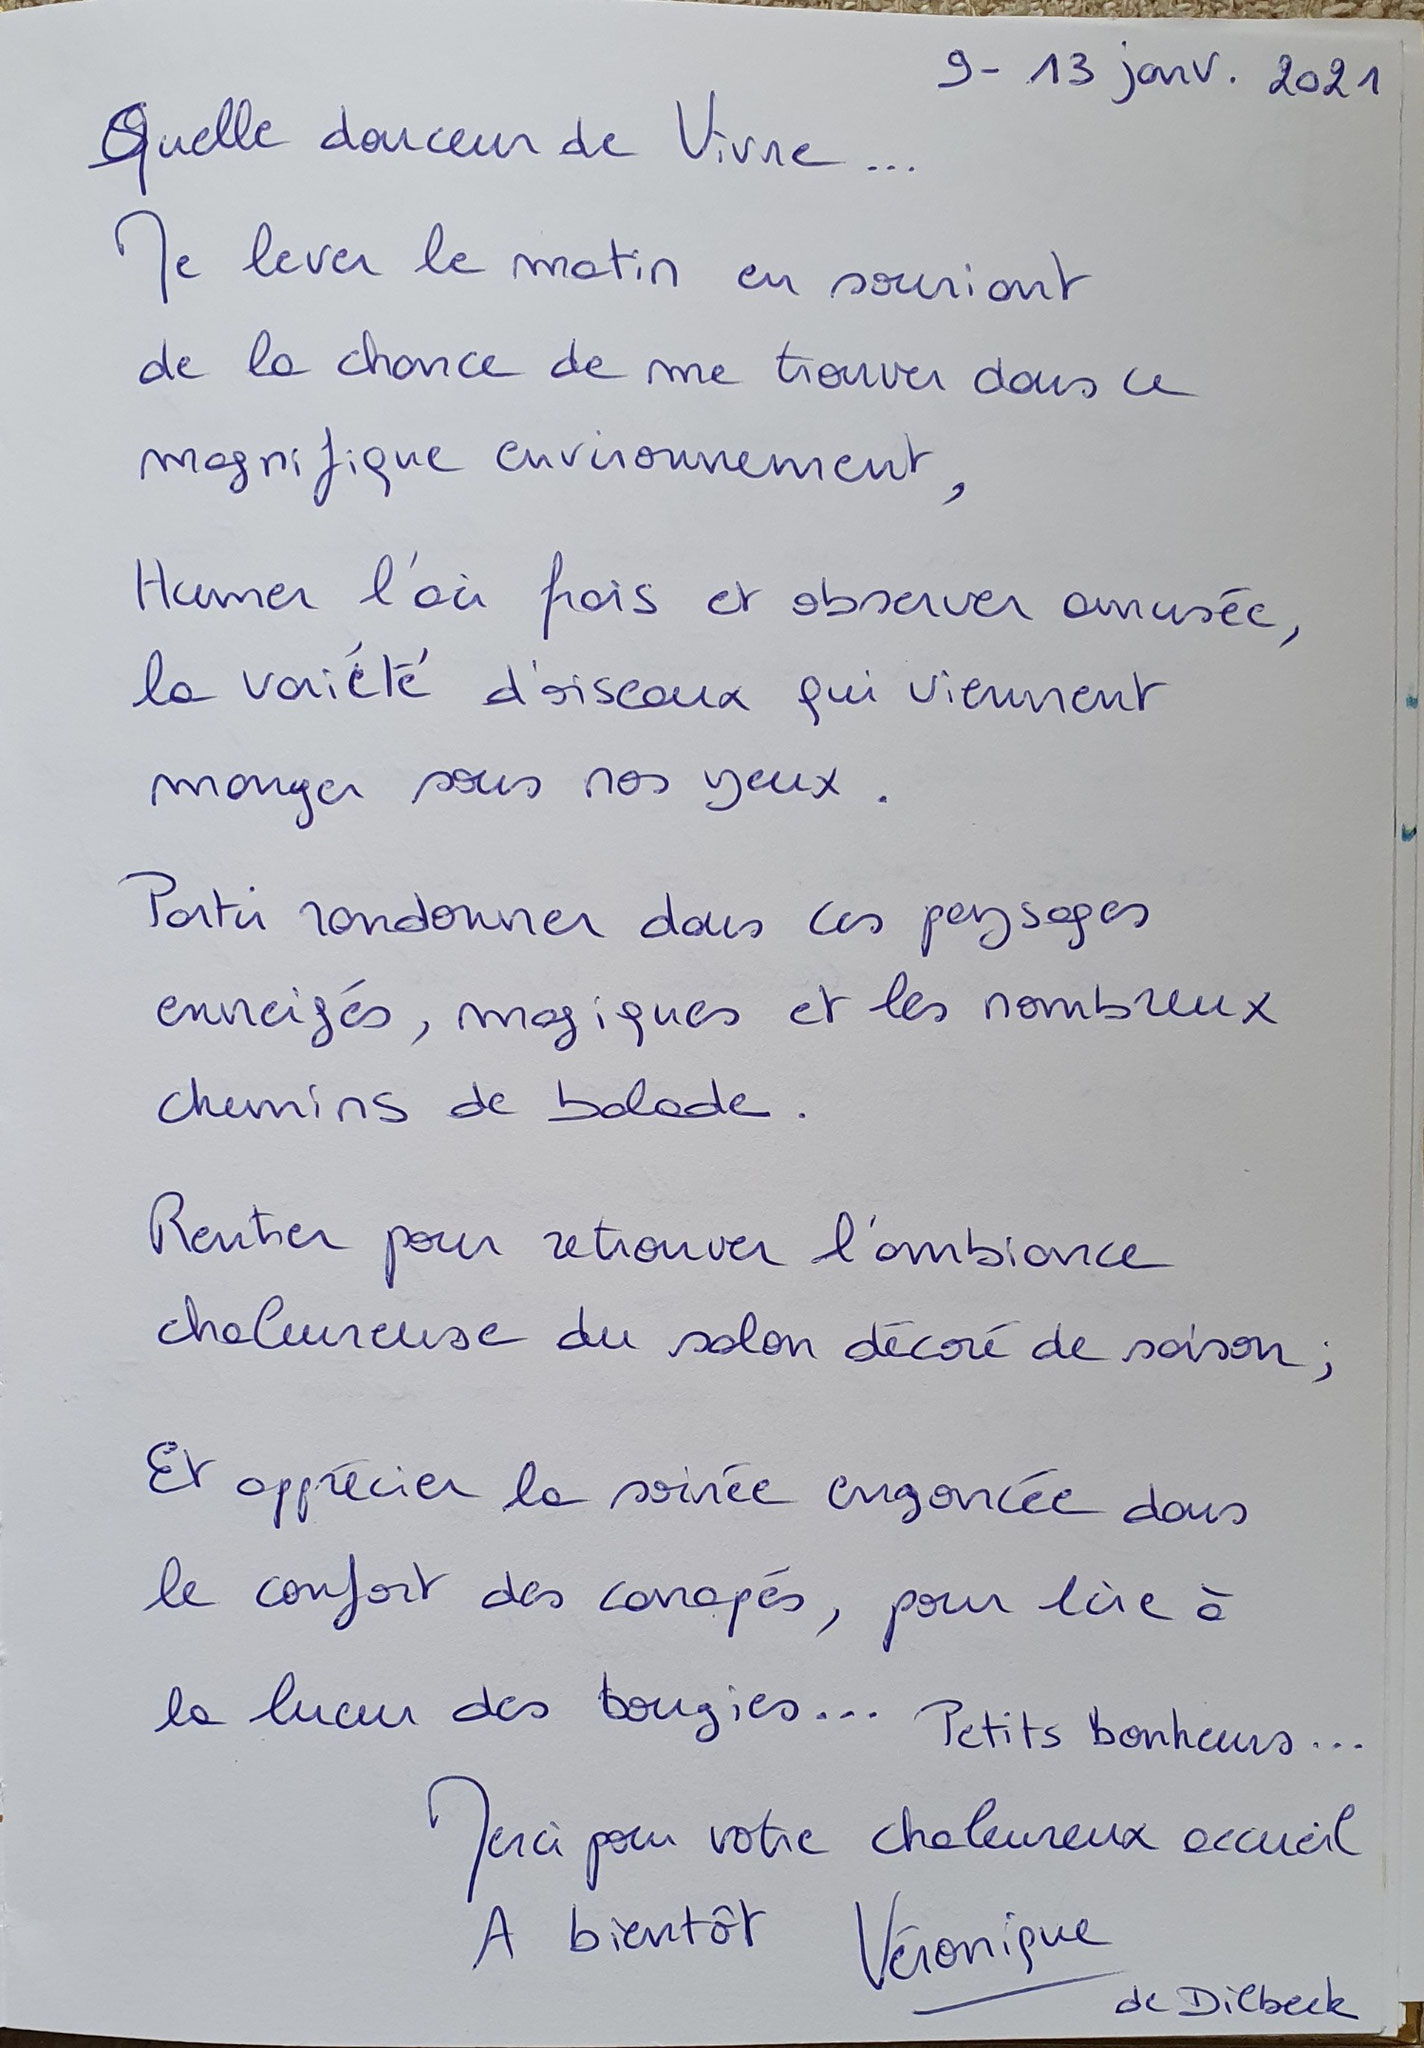 9 - 13 janv. 2021
Quelle douceur de Vivre ...
Me lever le matin en souriant
de la chance de me trouver dans ce
magnifique environnement,
Humer l'air frais et observer amusée,
la variété d'oiseaux qui viennent
manger sous nos yeux.
Partir randonner dans ces paysages
enneigés, magiques et les nombreux
chemins de balade.
Rentrer pour retrouver l'ambiance
chaleureuse du salon décoré de saison ;
Et apprécier la soirée engoncée dans
le confort des canapés, pour lire à
la lueur des bougies... Petits bonheurs...
Merci pour votre chaleureux accueil
A bientôt Véronique
de Dilbeek